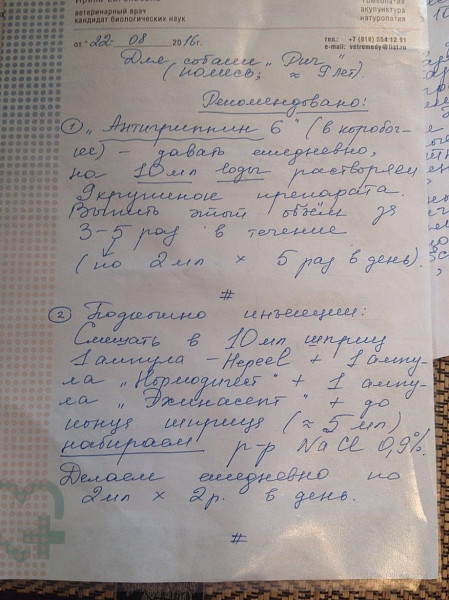 ветеринарный врач
кандидат биологических наук
гомеопатия
акупунктура
натуропатия
от "22" 08 2016г.
тел.: +7 (918) 354 12 91
e-mail: vetremedy@list.ru
Для собаки „Рич"
(помесь; ≈ 9 лет).
Рекомендовано:
① „Антигриппин 6" (в коробоч-
ке) – давать ежедневно,
на 10мл воды растворяем
9 крупинок препарата.
Выпить этот объём за
3-5 раз в течение
(по 2мл × 5 раз в день).
#
② Подкожно инъекции:
Смешать в 10мл шприц
1 ампула – Нереев + 1 ампу-
ла „Нормодигест" + 1 ампу-
ла „Эхинасепт" + до
конца шприца (≈ 5мл)
набираем р-р NaCl 0,9%.
Делаем ежедневно по
2мл × 2р. в день.
#